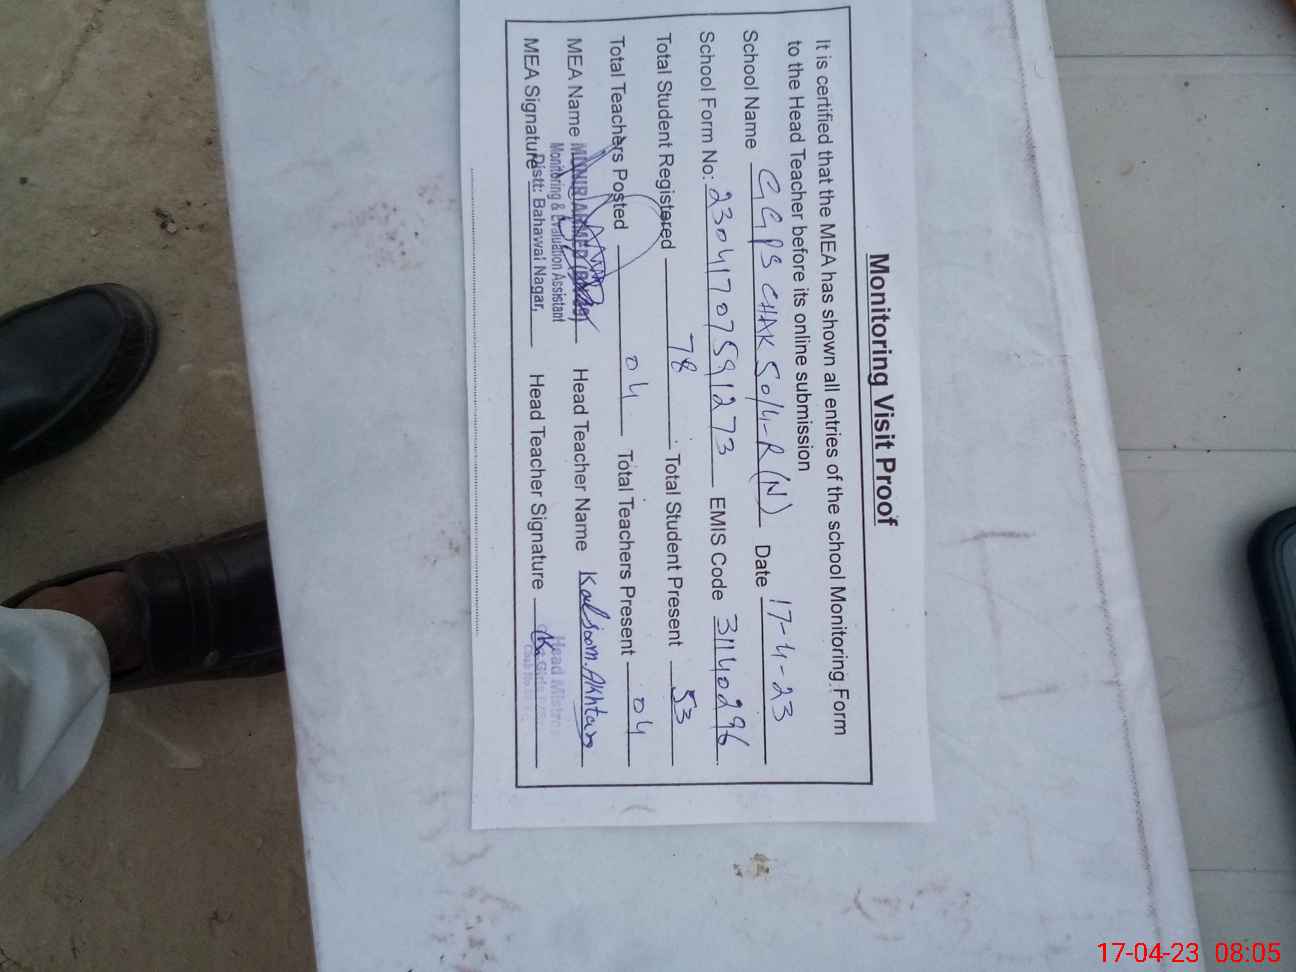 Monitoring Visit Proof
It is certified that the MEA has shown all entries of the school Monitoring Form
to the Head Teacher before its online submission
School Name GGPS CHAK 50/4-R (N) Date 17-4-23
School Form No: 23041707591273 EMIS Code 31140296
Total Student Registered 78 Total Student Present 53
Total Teachers Posted 04 Total Teachers Present 04
MEA Name MUNIR AHMED Head Teacher Name Kalsoom Akhtar
Monitoring & Evaluation Assistant
MEA Signature Distt: Bahawal Nagar, Head Teacher Signature
Head Mistress
17-04-23 08:05